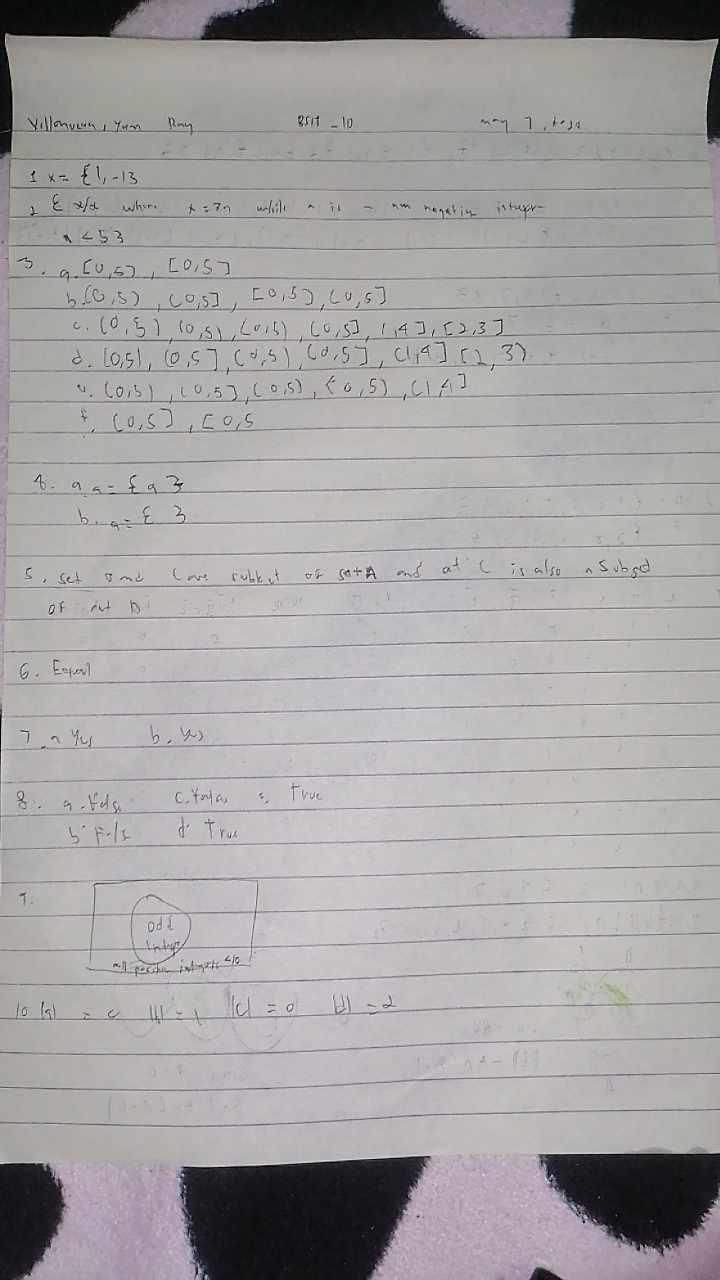 Villanueva, Yuan Ray BSIT - 10 may 7,
1 x = {1, -1}
2 { x/x where x = 3n while n is a non negative integer
n < 5 }
3. a. [0,5), [0,5]
b. (0,5), (0,5], [0,5), (0,5]
c. (0,5), (0,5), (0,5), (0,5], (1,4], [2,3]
d. (0,5), (0,5], (0,5), (0,5], (1,4] [2,3)
e. (0,5), (0,5], (0,5), (0,5), (1,4]
f. (0,5], [0,5
4. a. a = { a }
b. a = { }
5. set and C are subset of set A and C is also a subset
of set D
6. Equal
7. a Yes b. Yes
8. a. False c. False e. True
b. False d True
9.
odd
Integ
all positive integers <10
10 = 0 = 1 |c| = 0 |d| = 2